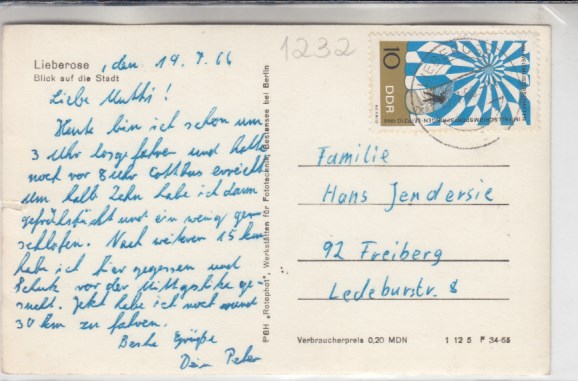 Lieberose, den 19. 8. 66
Blick auf die Stadt
Liebe Mutti!
Heute bin ich schon um
3 Uhr losgefahren und hatte
noch vor 8 Uhr Cottbus erreicht.
Um halb Zehn habe ich dann
gefrühstückt und ein wenig ge-
schlafen. Nach weiteren 15 km
habe ich hier gegessen und
Schutz vor der Mittagshitze ge-
sucht. Jetzt habe ich noch rund
30 km zu fahren.
Beste Grüße
Dein Peter
PBH „Rotophot", Werkstätten für Fototechnik, Bestensee bei Berlin
1232
10
DDR
Familie
Hans Jendersie
92 Freiberg
Ledeburstr. 8
Verbraucherpreis 0,20 MDN 1 12 5 F 34-65